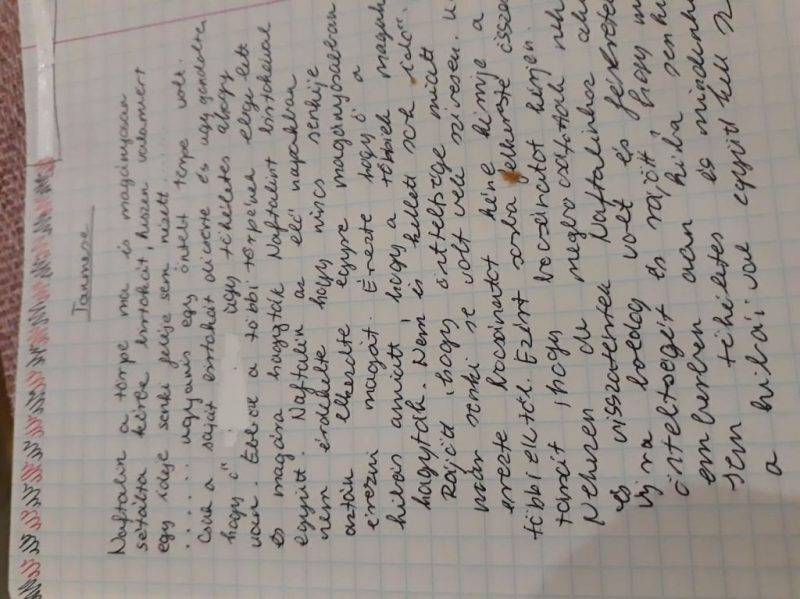 Tanmese
Naftalin a törpe ma is magányosan
sétálta körbe birtokait, hiszen valamiért
egy ideje senki feléje sem nézett.....
...... ugyanis egy öntelt törpe volt.
Csak a saját birtokait dicsérte és úgy gondolta
hogy ő úgy tökéletes ahogy
van. Ebből a többi törpének elege lett
és magára hagyták Naftalint birtokaival
együtt. Naftalin az elő napokban
nem érdekelte hogy nincs senkije
aztán elkezdte egyre magányosabban
érezni magát. Érezte hogy ő a
hibás amiatt, hogy a többiek magára
hagyták. Nem is kellett sok idő
Rájöjjön, hogy önteltsége miatt
már senki se volt vele szívesen.
érezte bocsánatot kéne kérnie a
többiektől. Ezért sorba felkereste össze
társait, hogy bocsánatot kérjen.
Nehezen de megbocsátottak neki
és visszatértek Naftalinhoz aki
újra boldog volt és
önteltségét és rájött, hogy
emberben van hiba senki
sem tökéletes és
a hibáival együtt kell